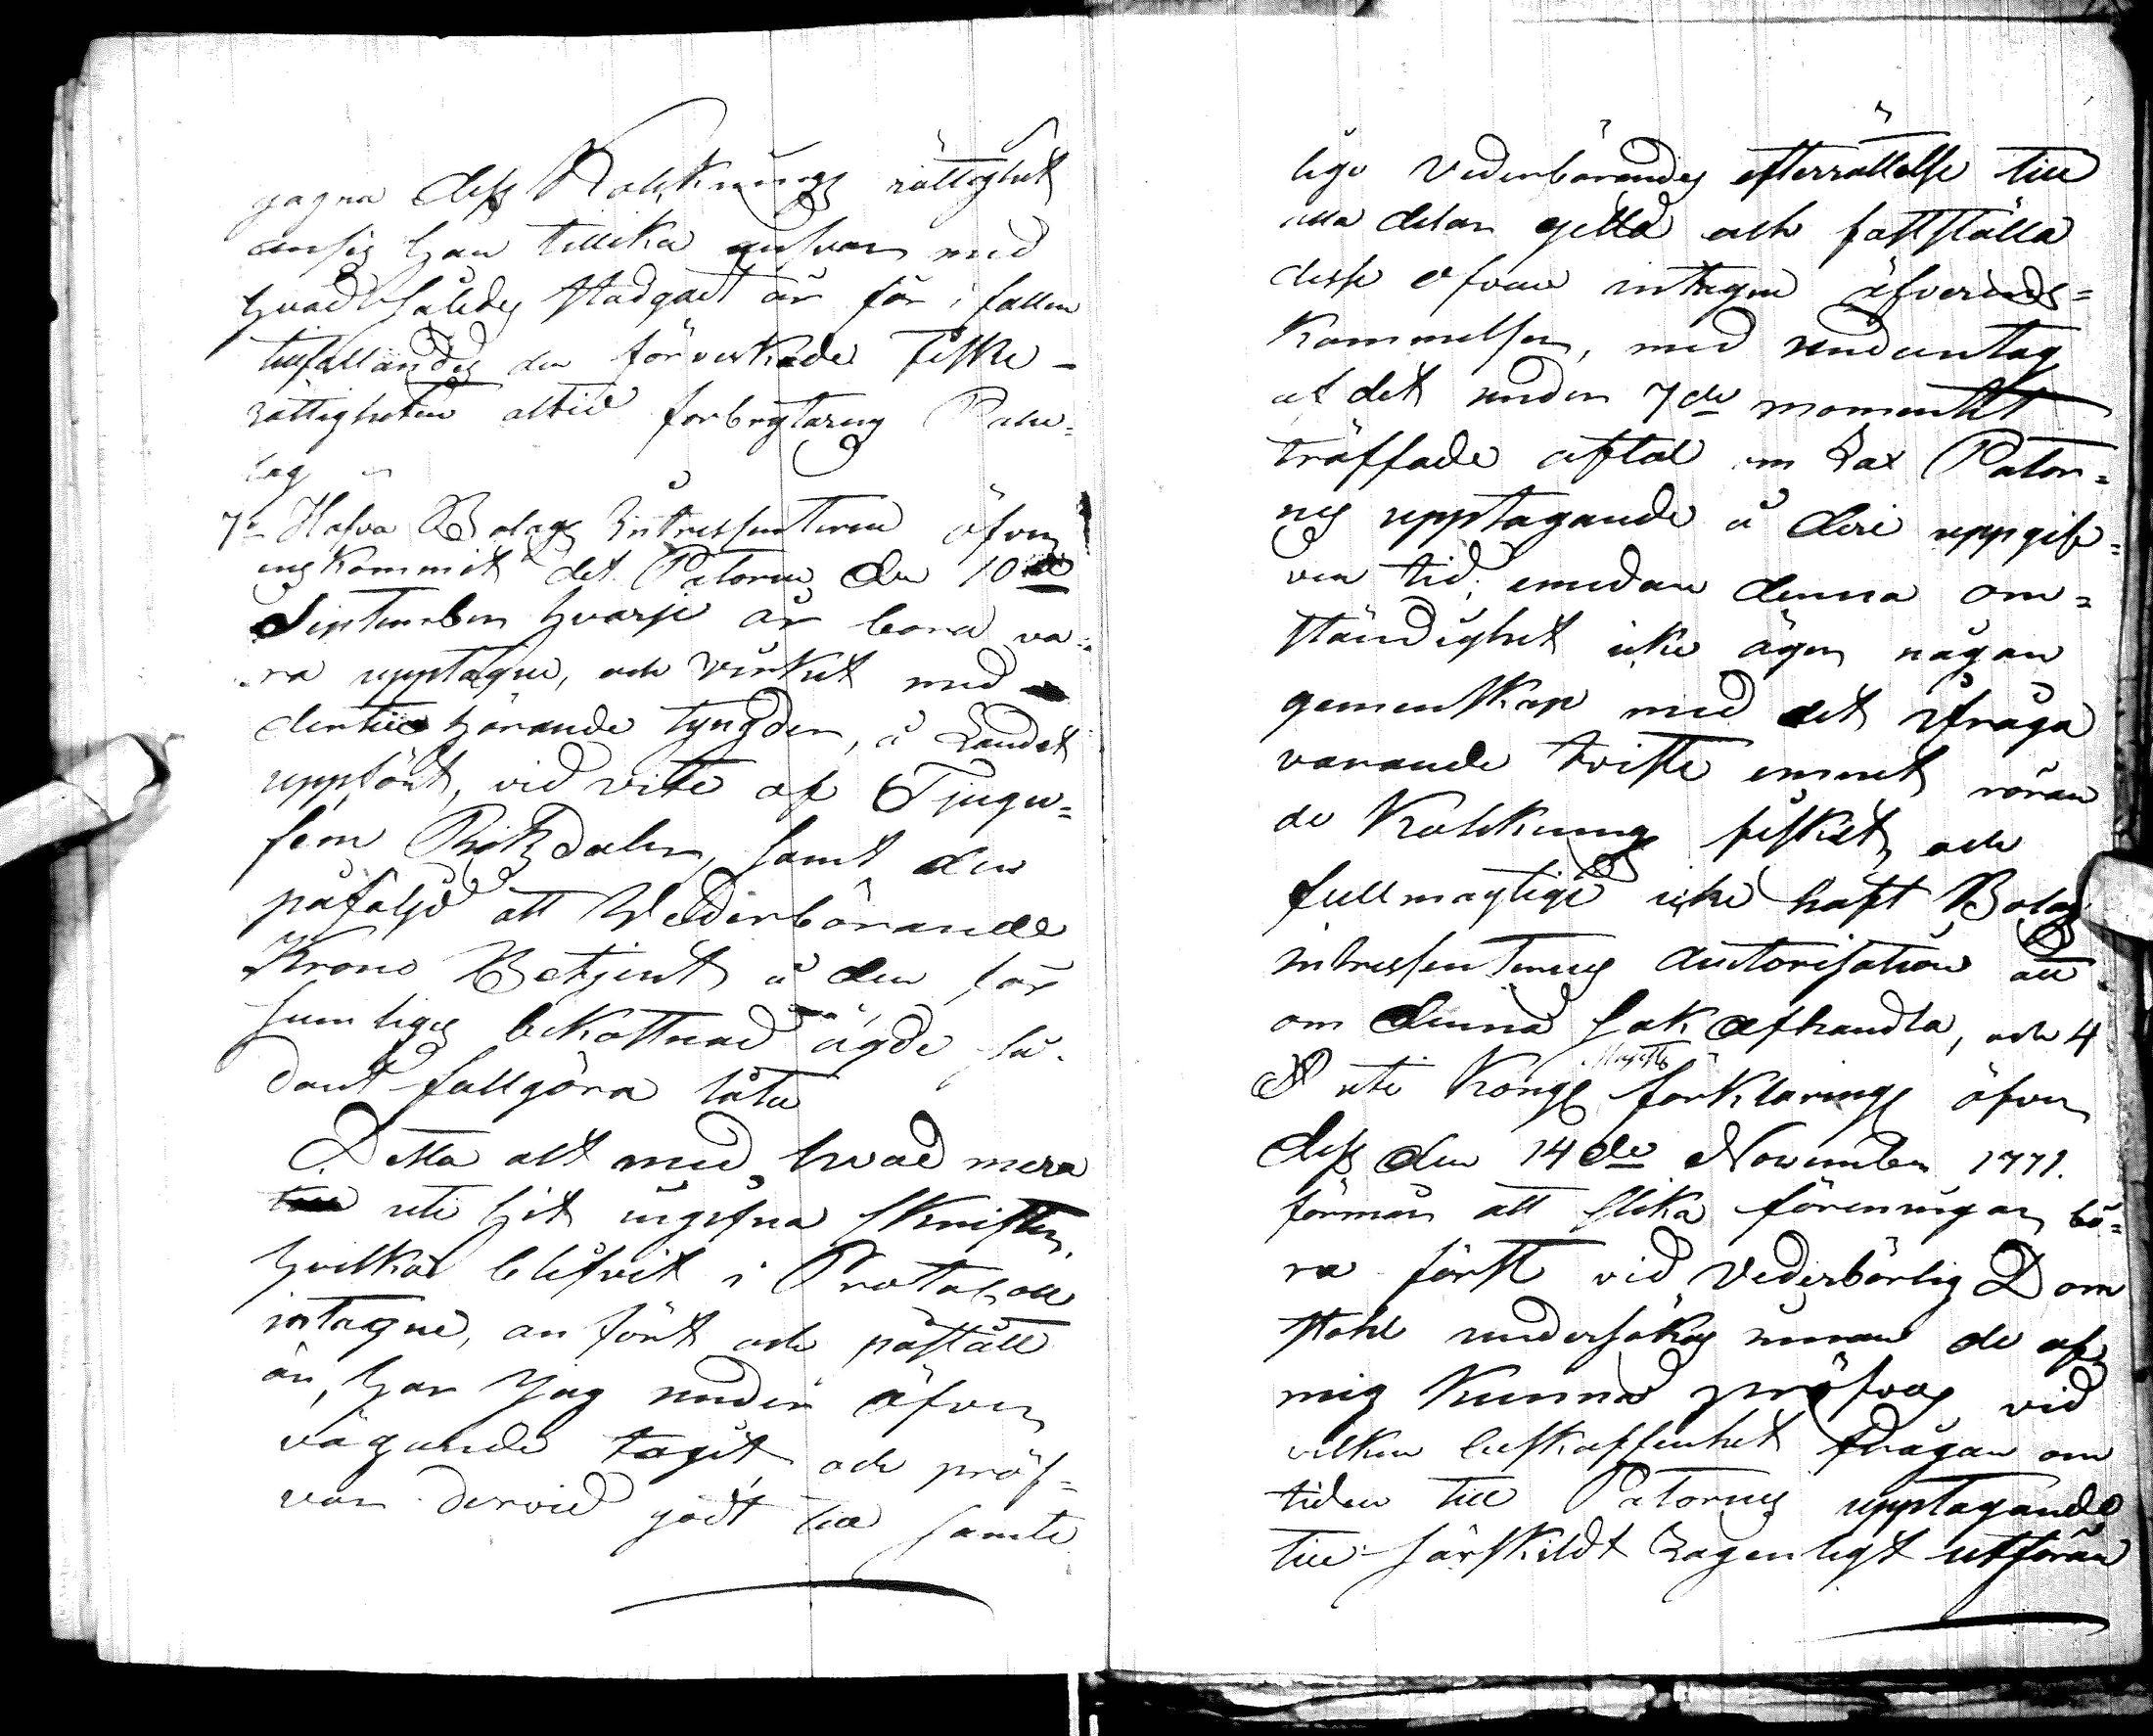 gagna dess Kolknings rättighet
ansig han tillika ansvar med
hvad således stadgadt är för i fallen
tillfallandes den förverkade Fiske-
rättigheten altid förbrytarens Pate=
lag
7o Hafva Bolags Intressenterne öfver
enskommit det Patorne den 10de
September hvarje år böra va=
ra upptagne, och virket med
dertill hörande tyngder, å Landet
uppfört, vid vite af Tjugu=
fem Riksdaler, samt den
påfölgd att Vederbörande
Krono Betjent å den för
sumliges bekostnad ägde så-
dant fullgöra låta
Detta alt med hvad mera
uti hit ingifna skrifter,
hvilka blifvit i Protokoll
intagne, anfört och påstått
är, har Jag under öfver
vägande tagit, och pröf=
var dervid godt till samte
lige Vederbörandes efterrättelse till
alla delar gilla och fastställa
desse ofvan intagne öfverens=
kommelser, med undantag
af det under 7de momentet
träffade aftal om Lax Pator=
nes upptagande å deri uppgif=
ven tid; emedan denna om=
ständighet icke äger någon
gemenskap med det ifråga
varande tviste emnet röran
de Kolknings fisket, och
fullmägtige icke haft Bolags
intressenternes Autorisation att
om denna sak afhandla, och 4
§ uti Kongl Majsts förklaring öfver
dess den 14de November 1771.
förmår att slika föreningar bö=
ra först vid Vederbörlig Dom
stohl undersökas innan de af
mig kunna pröfvas, vid
vilken beskaffenhet frågan om
tiden till Patornes upptagande
till särskildt Lagenligt utföran